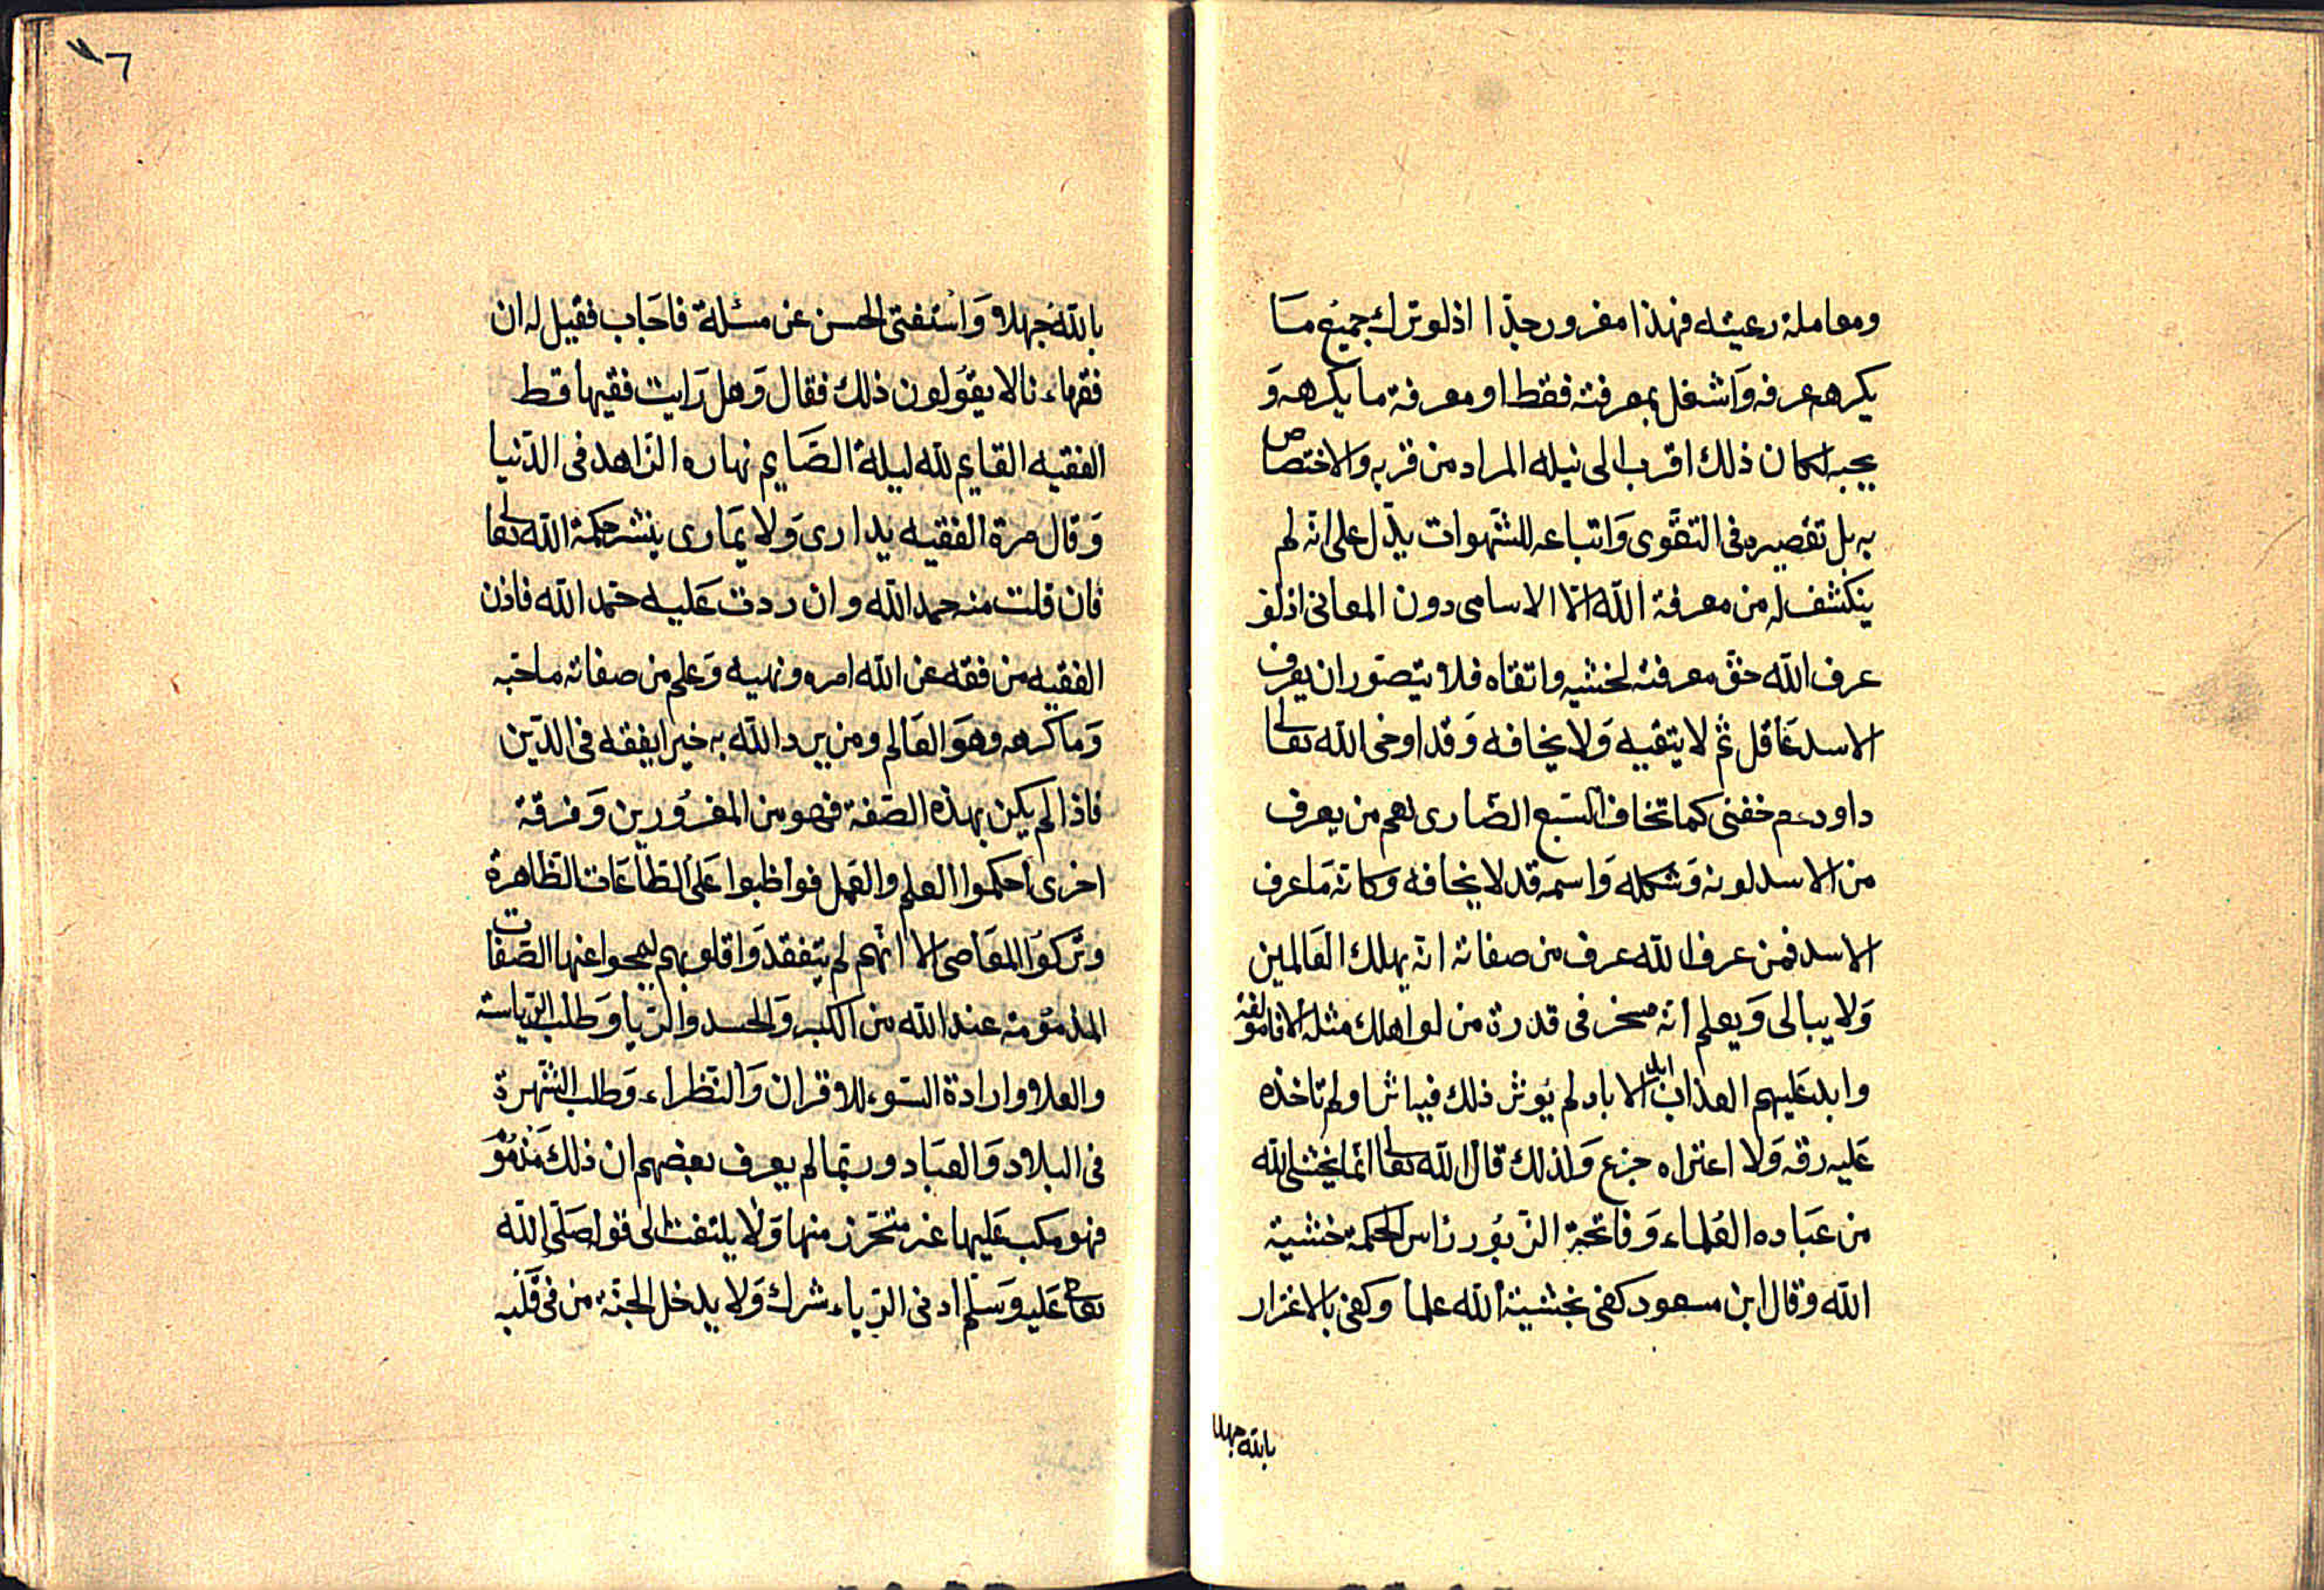 ومعاملة رعيته فهذا مغرور جدّا اذ لو ترك جميع مـَا
يكرهه عرفه وَاشتغل بمعرفته فقط او معرفة ما يكرهه وَ
يحبه لكان ذلك اقرب الى نيله المراد من قربه والاختصاص
به بل تقصيره فى التقوى وَاتباعه للشهوات يدّل على انه لم
ينكشف له من معرفة الله الّا الاسامى دون المعانى اذ لو
عرف الله حقّ معرفته لخشيه واتقاه فلا يتصّور ان يعرف
الاسد عَاقل ثم لا يتقيه وَلا يخافه وَقد اوحى الله تعالى
داود عم خفنى كما تخاف السّبع الضّارى نعم من يعرف
من الاسد لونه وَشكله وَاسمه قد لا يخافه وكانه مَا عرف
الاسد فمن عرف الله عرف من صفاته انه يهلك العَالمين
وَلا يبالى وَيعلم انه مسخر فى قدرة من لو اهلك مثله الافا مولفة
وابد عَليهم العذاب ابد الاباد لم يُوثر ذلك فيه اثرا ولم تاخذه
عَليه رقه وَلا اعتراه جزع وَلذلك قال الله تعالى انما يخشى الله
من عبَاده العُلماء وَفاتحة الزّبُور راس الحكمة خشية
الله وقال ابن مسعود كفى بخشية الله علما وكفى بالاغترار
بالله جهلا
٧٦
بالله جُهلا وَاسْتفتى الحسن عن مسئلة فاجَاب فقيل له ان
فقهاءنا لا يقوَلون ذلك فقال وَهل رَايت فقيها قط
الفقيه القايم لله ليلة الصَّايم نهاره الزّاهد فى الدّنيا
وَقال مرة الفقيه يدارى وَلا يمَارى ينشر حكمة الله تعالى
فان قلت منه حمد الله وان ردت عَليه حمد الله فاذن
الفقيه من فقه عن الله امره ونهيه وَعلم من صفاته ما احبه
وَما كرهه وهوَ العَالم ومن يرد الله به خيرا يفقه فى الدّين
فاذا لم يكن بهذه الصّفة فهو من المغرُورين وَفرقة
اخرى احكموا العلم والعَمل فواظبوا عَلى الطّاعَات الظّاهرة
وتركوُا المعَاصى الا انّهم لم يتفقدوَا قلوبهم ليمحوا عنها الصّفات
المذموُمة عند الله من الكبر وَالحسد والرّيا وَطلب الرّياسة
والعلا وارادة السّوء للاقران وَالنّظراء وَطلب الشّهرة
فى البلاد وَالعبَاد وربّما لم يعرف بعضهم ان ذلك مَذمُوْ
فهو مكب عَليها غير متحَرز منها وَلا يلتفت الى قوله صَلّى الله
تعالى عَليه وَسَلّم ادنى الرّياء شرك وَلا يدخل الجنّة من فى قَلْبه